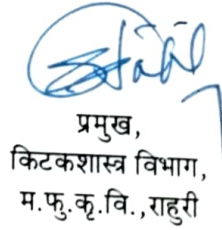 प्रमुख,
किटकशास्त्र विभाग,
म.फु.कृ.वि.,राहुरी